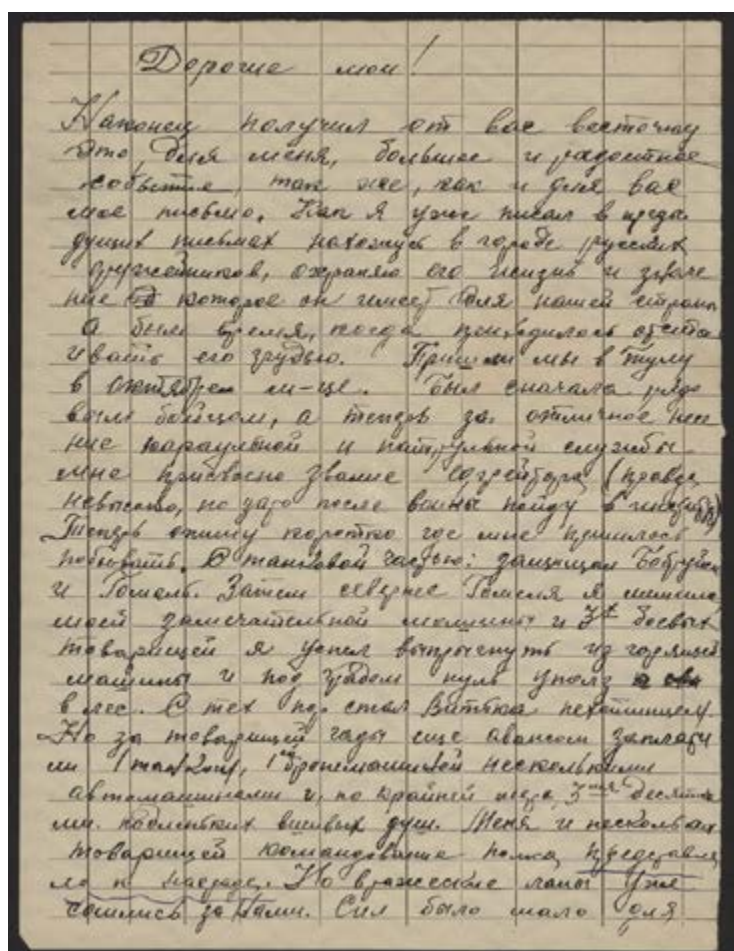 Дорогие мои!
Наконец получил от вас весточку
Это для меня, большое и радостное
событие, так же, как и для вас
мое письмо. Как я уже писал в преды
дущих письмах нахожусь в городе русских
оружейников, охраняю его жизнь и значе
ние которое он имеет для нашей страны
А было время, когда приходилось отста
ивать его грудью. Пришли мы в Тулу
в октябре м-це. Был сначала рядо
вым бойцом, а теперь за отличное несе
ние караульной и патрульной службы
мне присвоено звание ефрейтора (правда
невысоко, но зато после войны пойду в
Теперь опишу коротко где мне пришлось
побывать. С танковой частью: защищал Бобруйск
и Гомель. Затем севернее Гомеля я лишился
моей замечательной машины и 3х боевых
товарищей я успел выпрыгнуть из горящей
машины и под градом пуль уполз
в лес. С тех пор стал Витька пехотинцем.
Но за товарищей гады еще авансом заплати
ли 1 1ой бронемашиной несколькими
автомашинами и, по крайней мере, 3мя десятка
ми подлых вшивых душ. Меня и нескольких
товарищей командование полка представи
ло к награде. Но вражеские лапы уже
сошлись за Нами. Сил было мало для